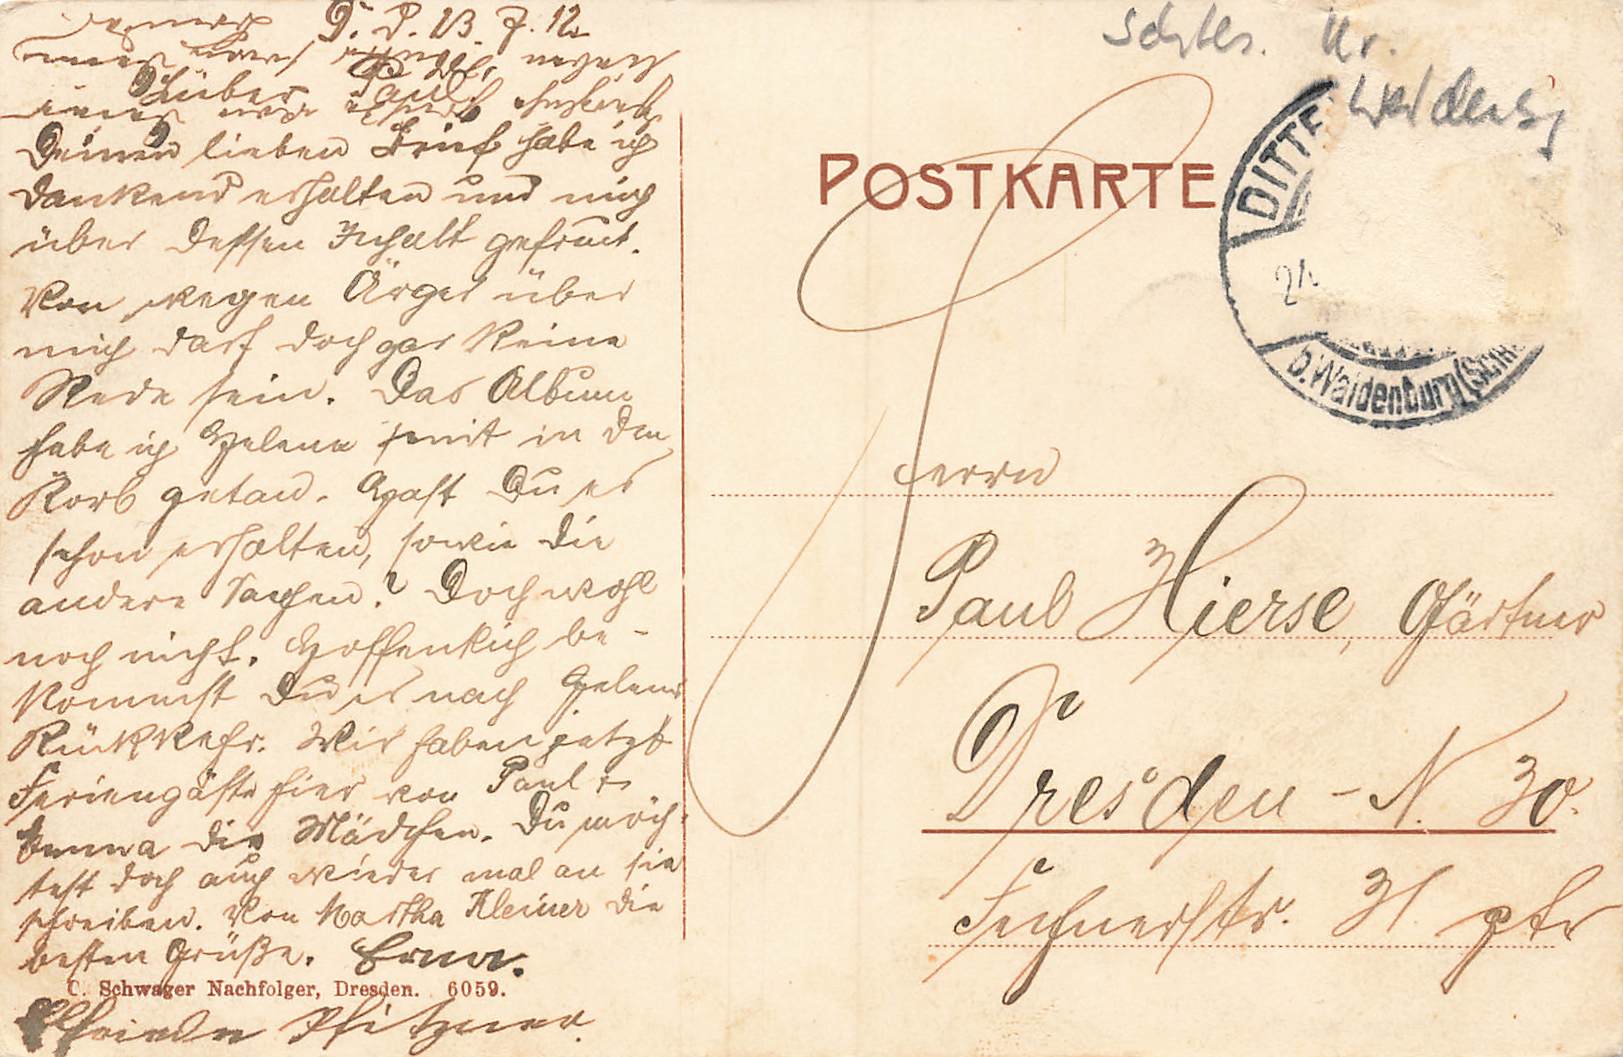 D. P. 23. 7. 12.
Lieber Paul
Deinen lieben Brief habe ich
dankend erhalten und mich
über dessen Inhalt gefreut.
Von wegen Ärger über
mich darf doch gar keine
Rede sein. Das Album
habe ich Helene mit in den
Korb getan. Hast Du es
schon erhalten, sowie die
andere Sachen? Doch wohl
noch nicht. Hoffentlich be-
kommst Du es nach Helens
Rückkehr. Wir haben jetzt
Feriengäste hier von Paul +
Emma die Mädchen. Du möch-
test doch auch wieder mal an sie
schreiben. Von Martha Kleiner die
besten Grüße. Erna.
C. Schwager Nachfolger, Dresden. 6059.
Elfriede Pfitzner.
Schles. Kr.
Waldenbg
POSTKARTE
DITTE
24
b. Waldenburg (Schl
Herrn
Paul Hierse, Gärtner
Dresden - N. 30.
Fechnerstr. ptr